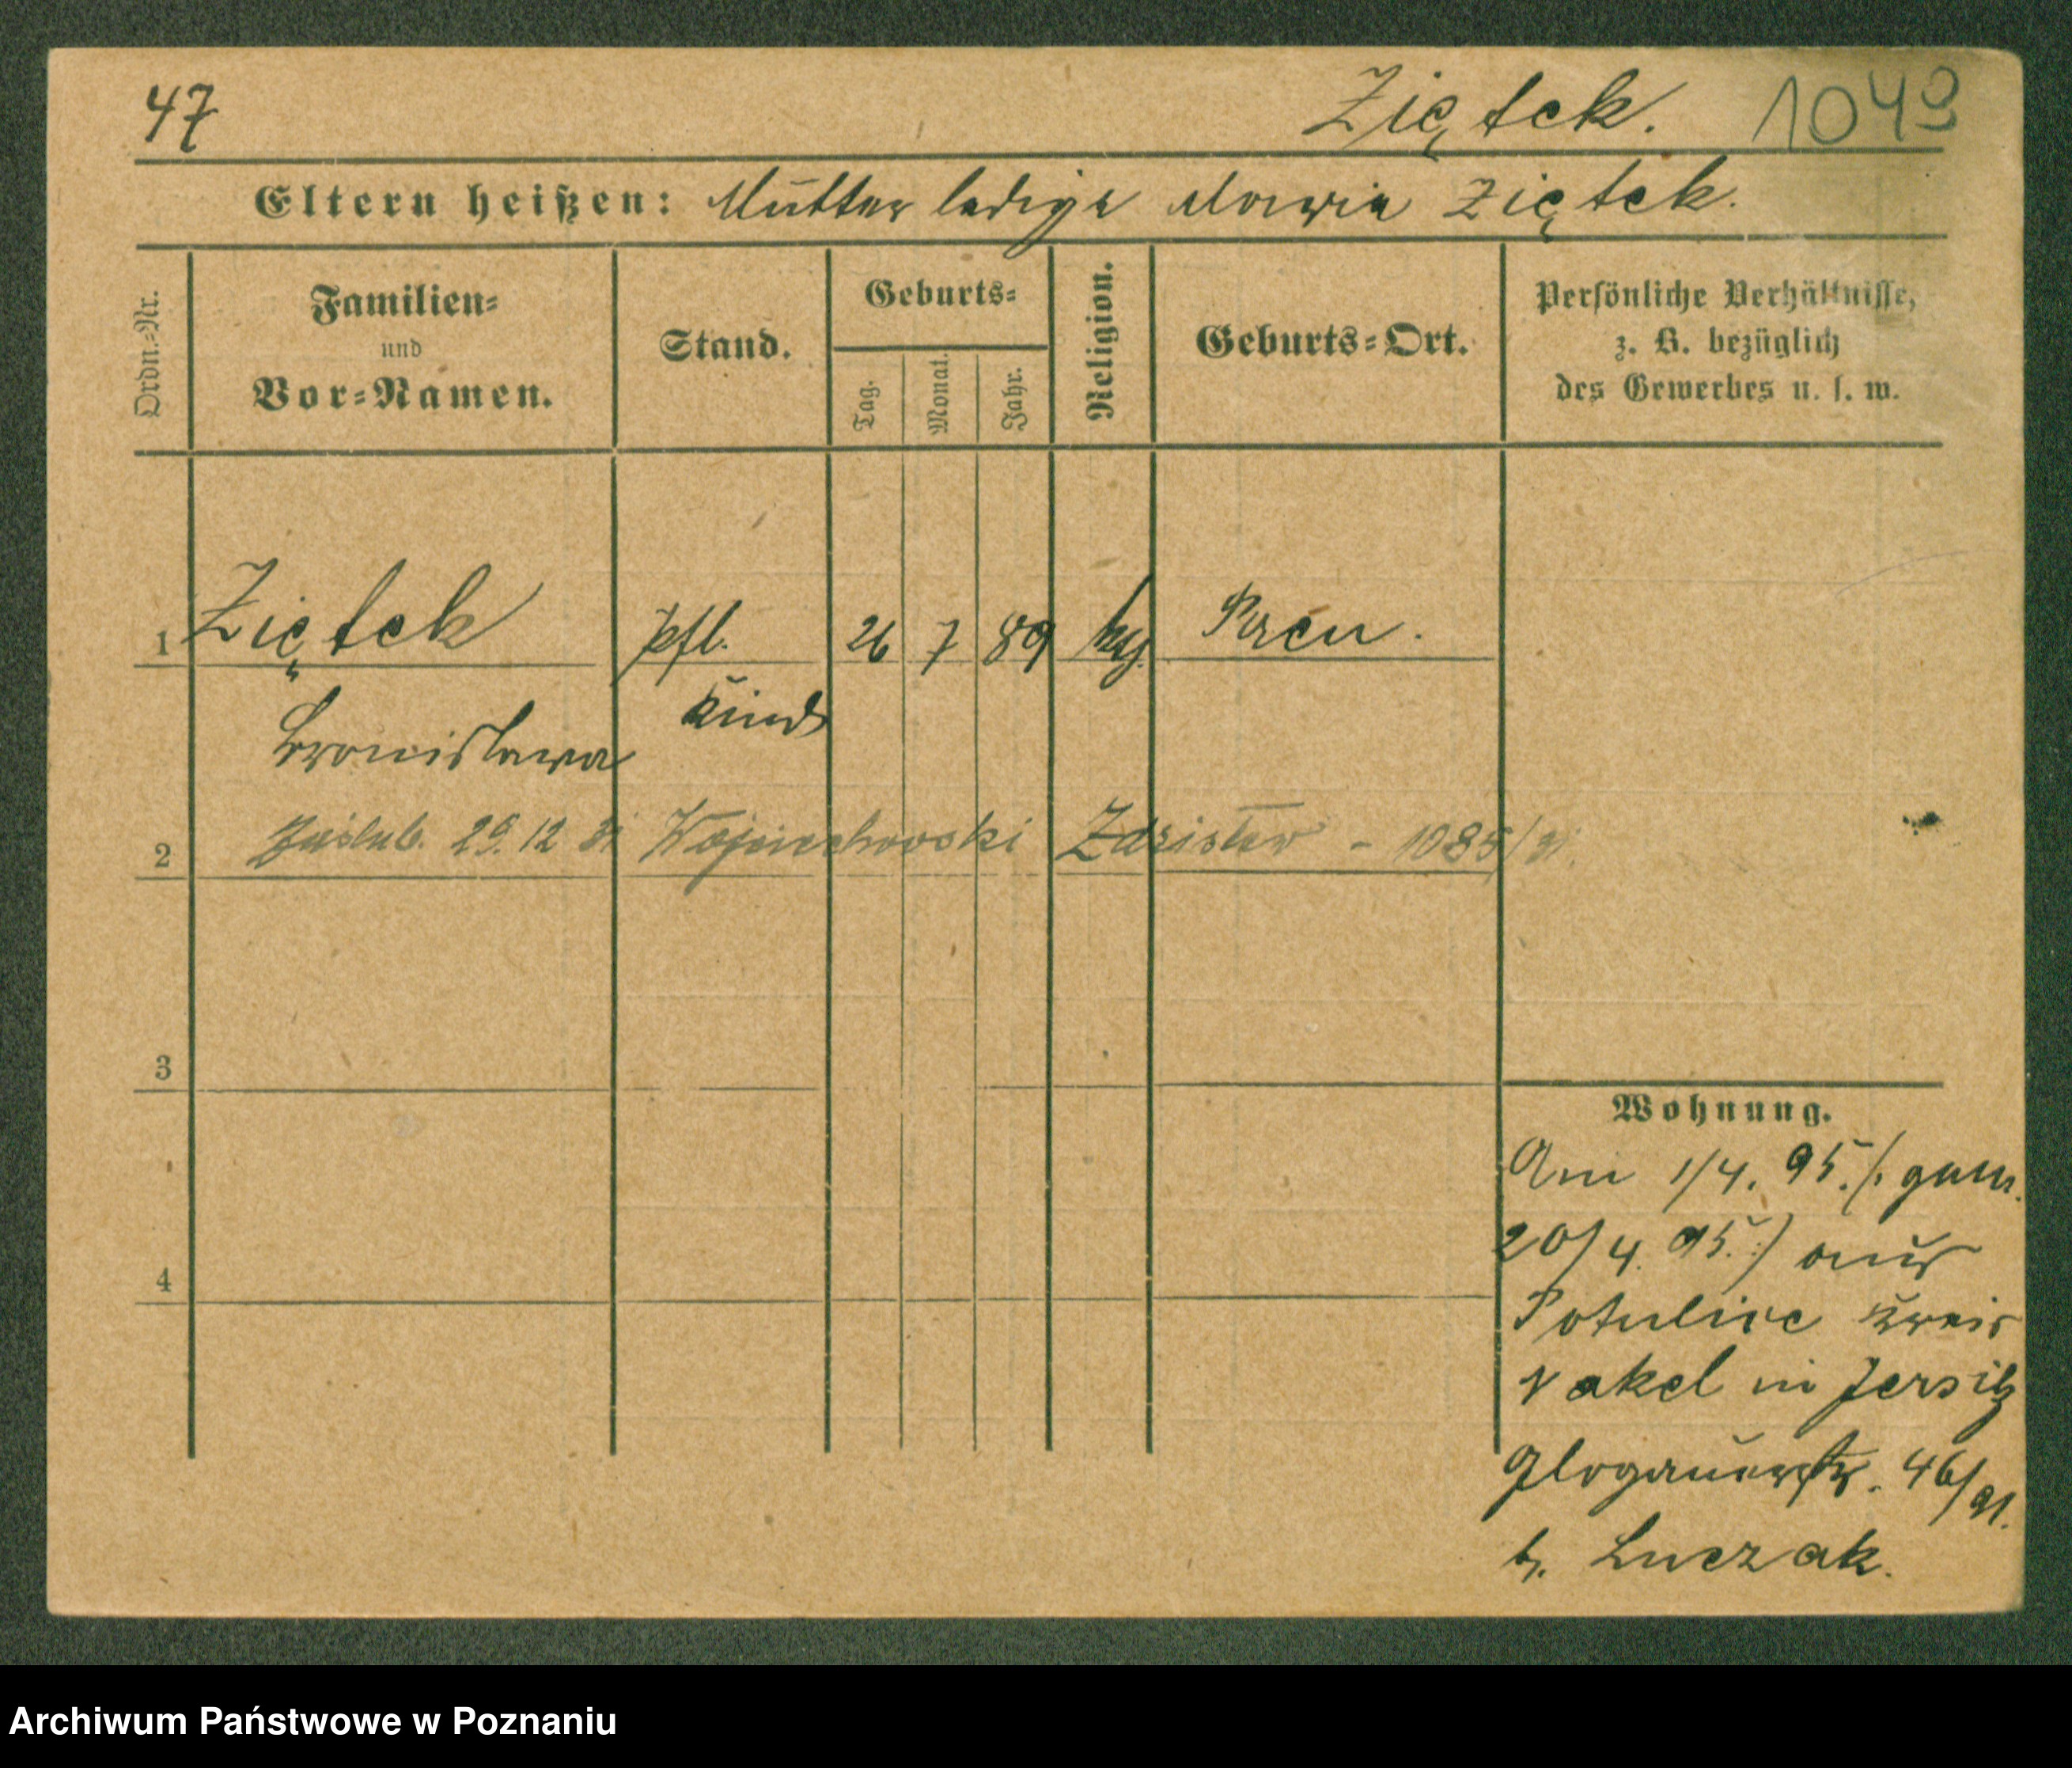 47 Ziętek. 1049
Eltern heißen: Mutter ledige Maria Ziętek.
Ordn.=Nr.
Familien=
und
Vor=Namen.
Stand.
Geburts=
Tag.
Monat.
Jahr.
Religion.
Geburts=Ort.
Persönliche Verhältnisse,
z. B. bezüglich
des Gewerbes u. s. w.
1 Ziętek pfl. 26 7 89 Posen.
Kind
Bronislawa
2 Zaślub. 29. 12 31 Wojciechowski Zdzisław - 1085/31.
3
4
Wohnung.
Am 1/4. 95. /: gem.
20/4. 95. :/ aus
Potulice Kreis
Nakel in Jersitz
Glogauerstr. 46/91.
b. Luczak.
Archiwum Państwowe w Poznaniu